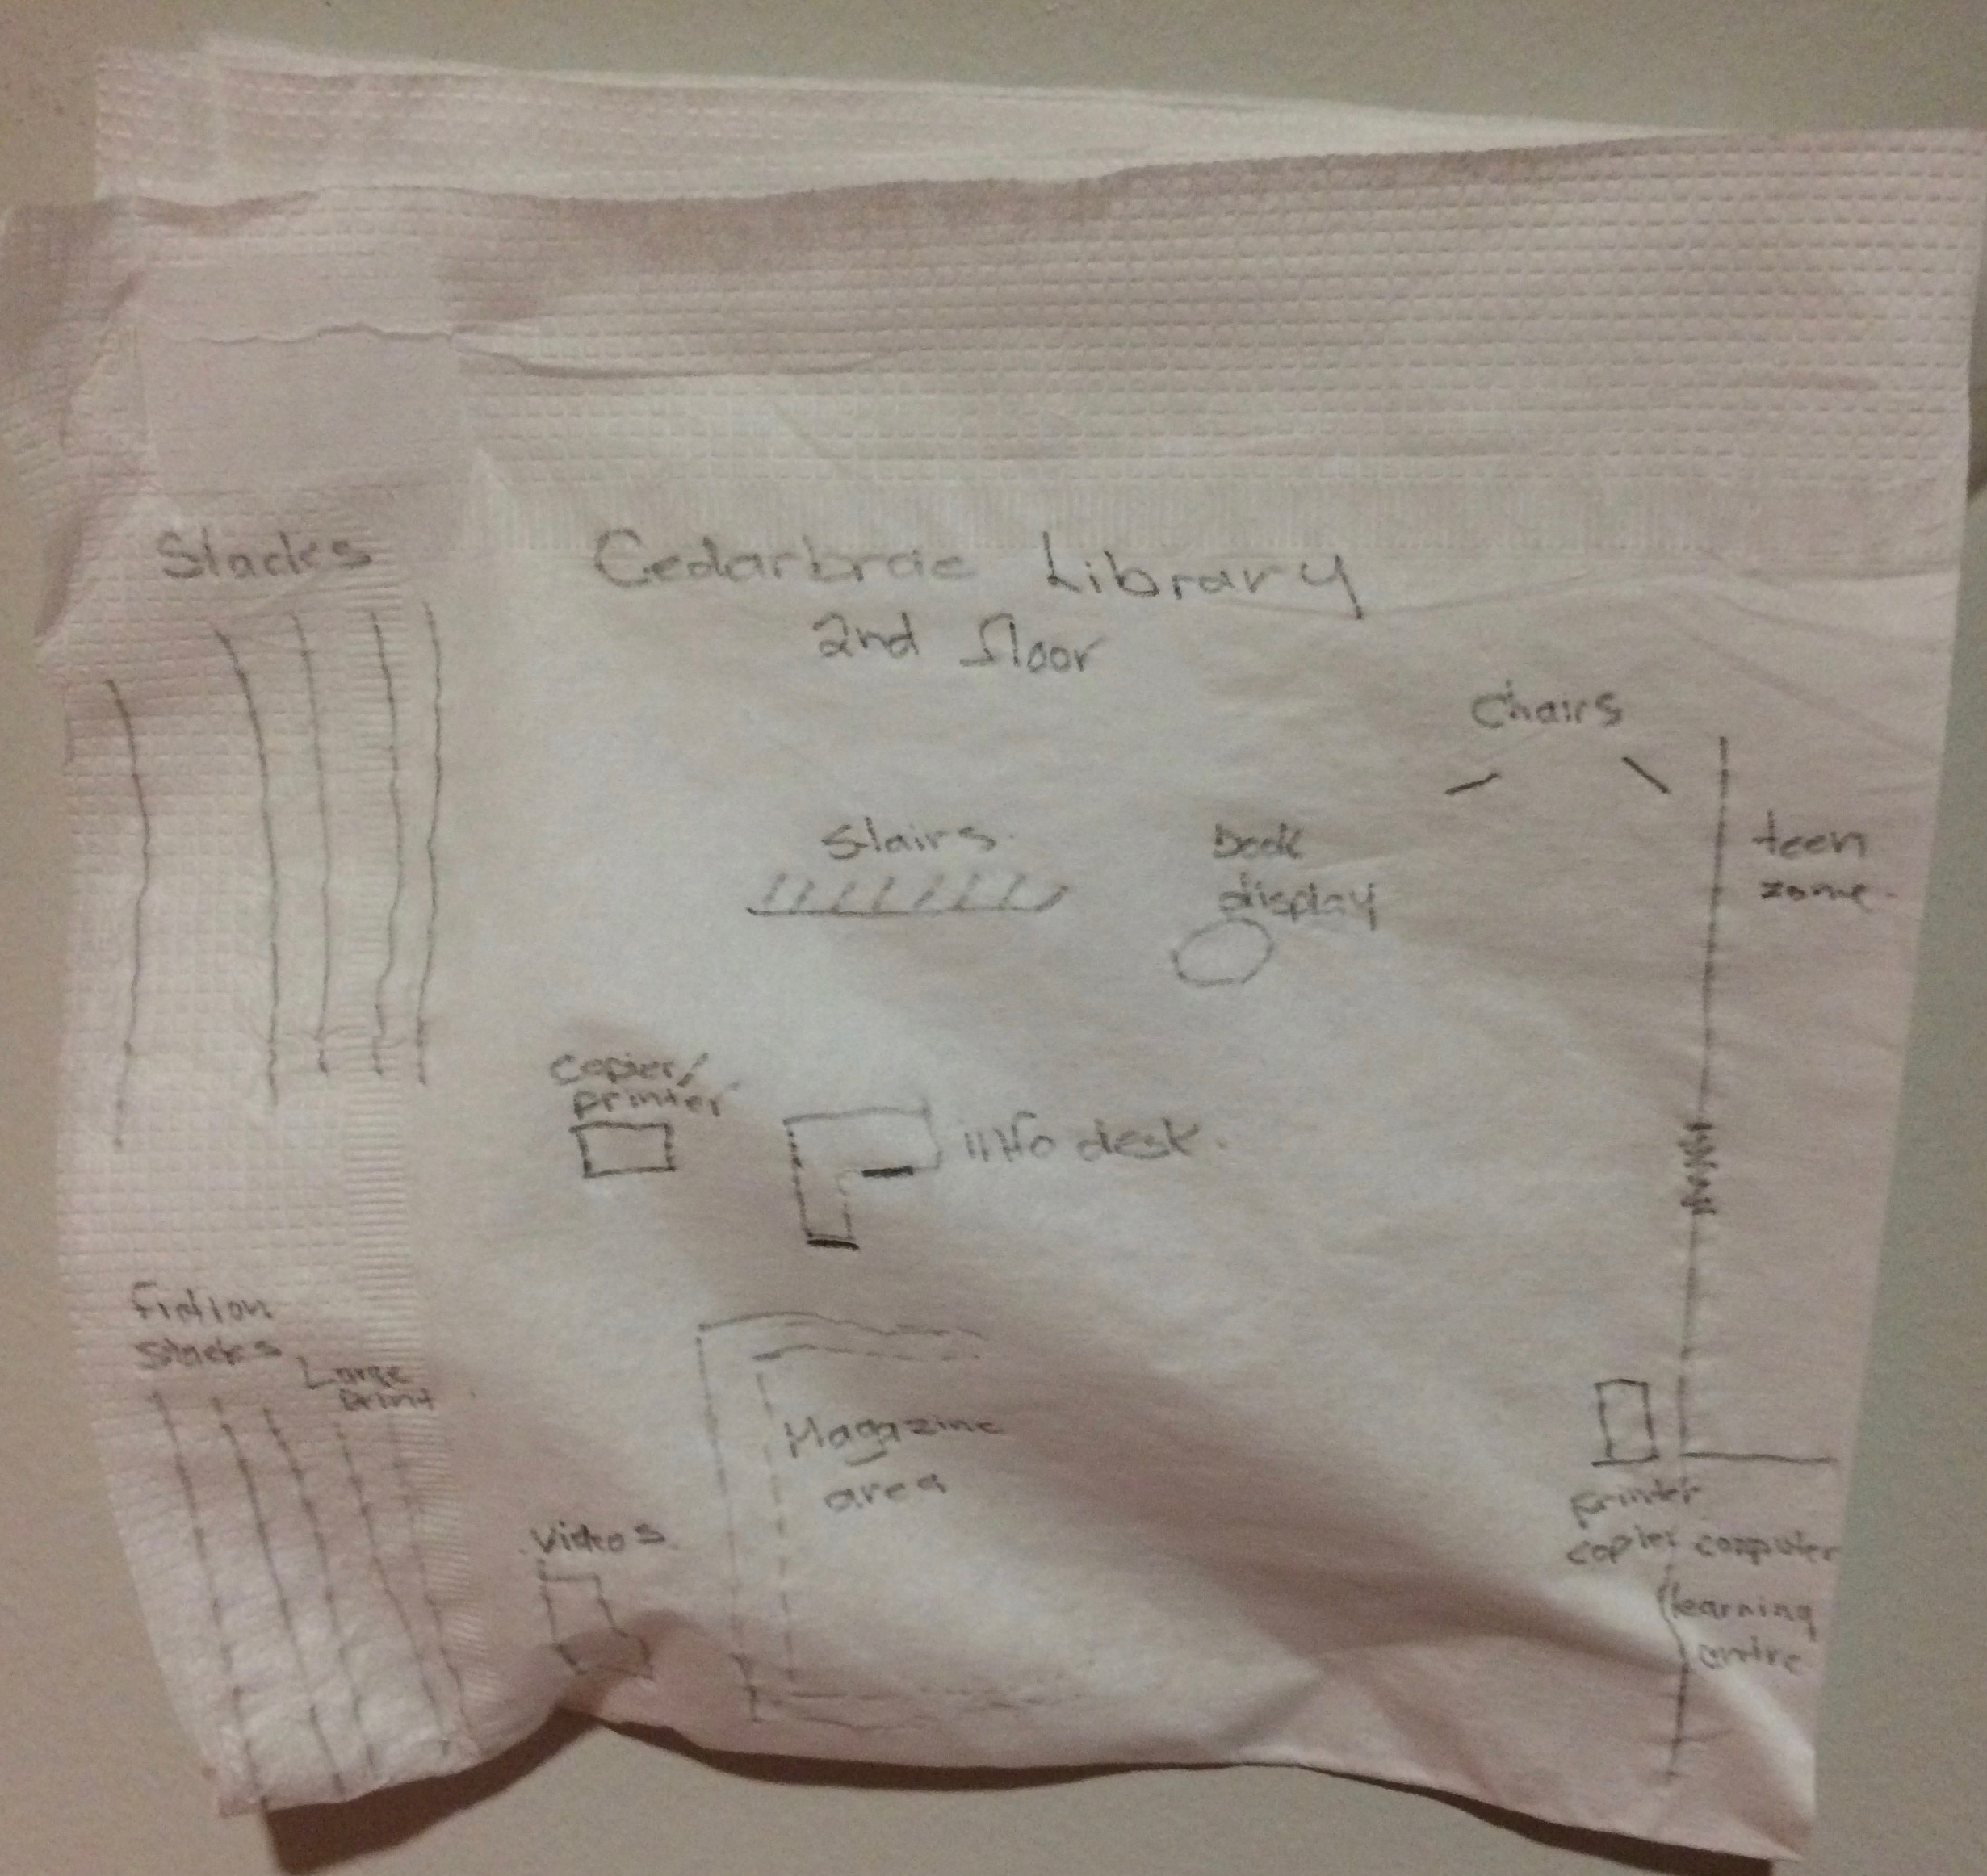 Stacks
Cedarbrae Library
2nd floor
Chairs
Stairs
Book
display
teen
zone
Copier/
printer
info desk
Fiction
Stacks
Large
print
Magazine
area
Videos
printer
copier
computer
learning
centre